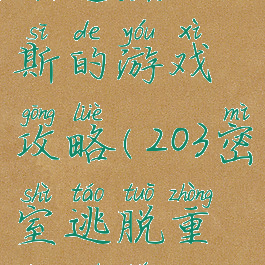 sī de yóu xì
斯的游戏
gōng lüè mì
攻略(203密
shì táo tuō zhòng
室逃脱重